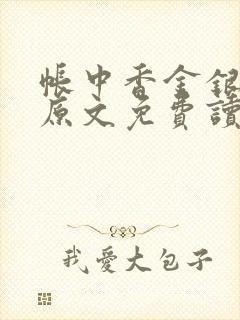 帳中香金銀
原文免費讀
我愛大包子